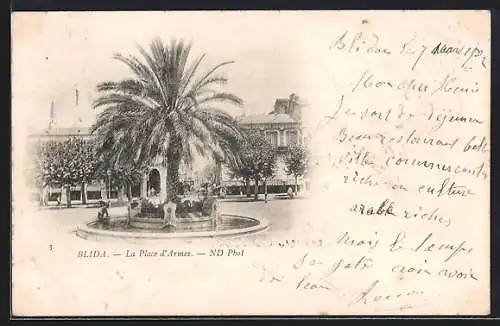 Blidah le 7 mars 1902
Mon cher Henri
Je sort de déjeuner
Beau restaurant belle
Ville commercante
riche en culture
arabe riches
Mais le temps
se gate crois avoir
de l'eau
5
BLIDA. — La Place d'Armes. — ND Phot